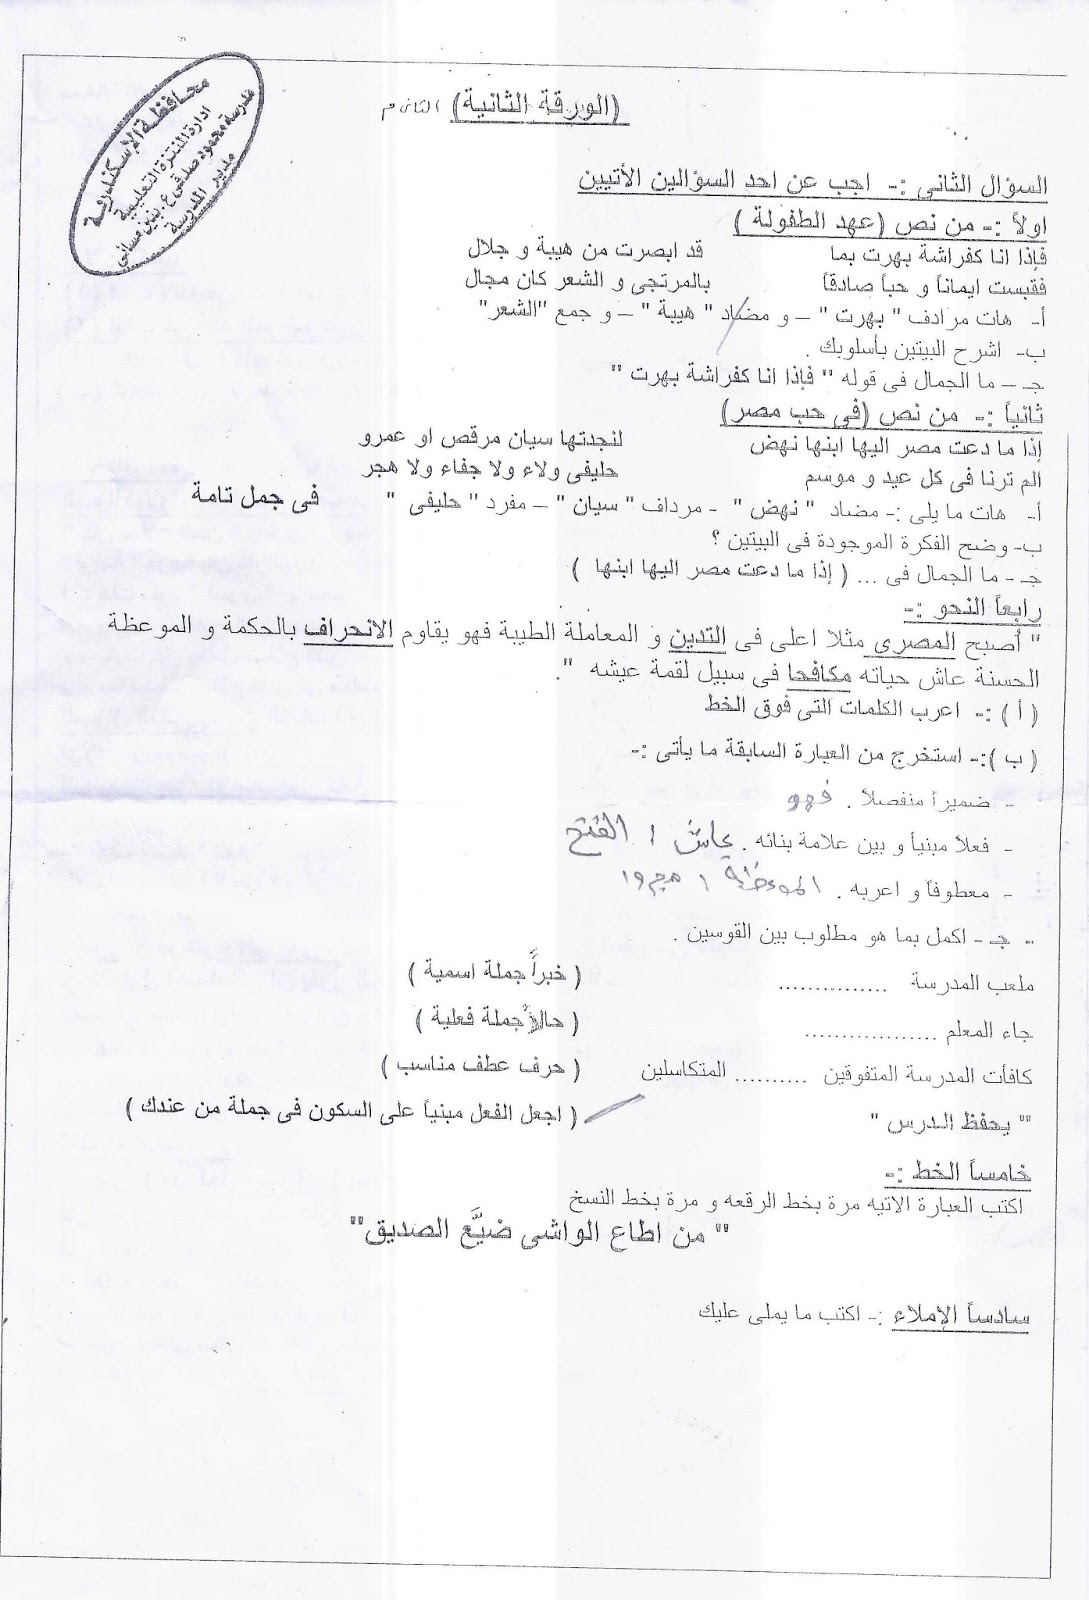 محافظة الإسكندرية
ادارة المنتزة التعليمية
مدرسة محمود صدقى ع. بنين مسائى
مدير المدرسة
(الورقة الثانية) الثانى م
السؤال الثانى :- اجب عن احد السؤالين الأتيين
اولاً :- من نص (عهد الطفولة )
فإذا انا كفراشة بهرت بما قد ابصرت من هيبة و جلال
فقبست ايماناً و حباً صادقاً بالمرتجى و الشعر كان مجال
أ- هات مرادف " بهرت " – و مضاد " هيبة " – و جمع "الشعر"
ب- اشرح البيتين بأسلوبك .
جـ – ما الجمال فى قوله " فإذا انا كفراشة بهرت "
ثانياً :- من نص (فى حب مصر)
إذا ما دعت مصر اليها ابنها نهض لنجدتها سيان مرقص او عمرو
الم ترنا فى كل عيد و موسم حليفى ولاء ولا جفاء ولا هجر
أ- هات ما يلى :- مضاد " نهض " - مرداف " سيان " – مفرد " حليفى " فى جمل تامة
ب- وضح الفكرة الموجودة فى البيتين ؟
جـ - ما الجمال فى ... ( إذا ما دعت مصر اليها ابنها )
رابعاً النحو :-
" أصبح المصرى مثلا اعلى فى التدين و المعاملة الطيبة فهو يقاوم الانحراف بالحكمة و الموعظة
الحسنة عاش حياته مكافحا فى سبيل لقمة عيشه ".
( أ ) :- اعرب الكلمات التى فوق الخط
( ب ):- استخرج من العبارة السابقة ما يأتى :-
- ضميراً منفصلاً . فهو
- فعلاً مبنياً و بين علامة بنائه . عاش / الفتح
- معطوفاً و اعربه . الموعظة / مجرور
- جـ - اكمل بما هو مطلوب بين القوسين .
ملعب المدرسة ............... ( خبراً جملة اسمية )
جاء المعلم .................. ( حالاً جملة فعلية )
كافأت المدرسة المتفوقين .......... المتكاسلين ( حرف عطف مناسب )
"" يحفظ الدرس " ( اجعل الفعل مبنياً على السكون فى جملة من عندك )
خامساً الخط :-
اكتب العبارة الاتيه مرة بخط الرقعه و مرة بخط النسخ
"" من اطاع الواشى ضيَّع الصديق""
سادساً الإملاء :- اكتب ما يملى عليك